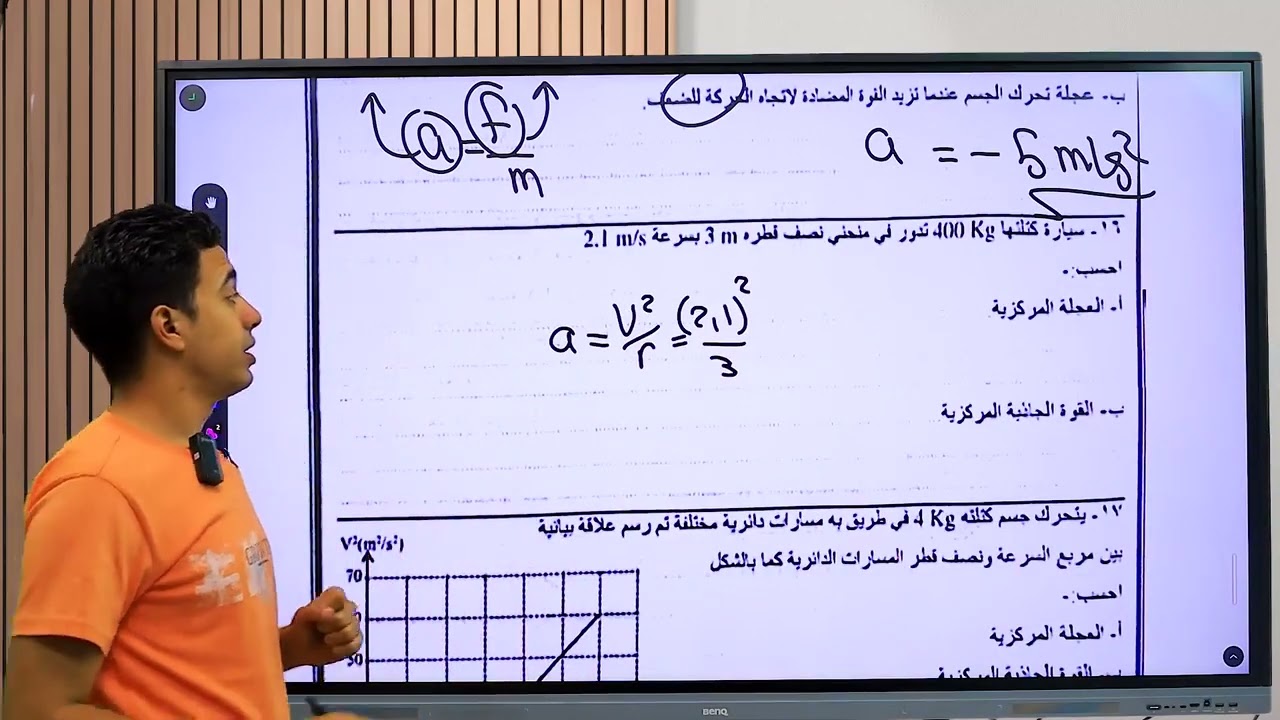 ب- عجلة تحرك الجسم عندما تزيد القوة المضادة لاتجاه الحركة للضعف.
a = f/m
a = - 5 m/s²
١٦- سيارة كتلتها 400 Kg تدور في منحني نصف قطره 3 m بسرعة 2.1 m/s
احسب:-
أ- العجلة المركزية
a = V²/r = (2,1)²/3
ب- القوة الجاذبة المركزية
١٧- يتحرك جسم كتلته 4 Kg في طريق به مسارات دائرية مختلفة تم رسم علاقة بيانية
بين مربع السرعة ونصف قطر المسارات الدائرية كما بالشكل
V²(m²/s²)
احسب:-
70
أ- العجلة المركزية
50
ب- القوة الجاذبة المركزية
BenQ